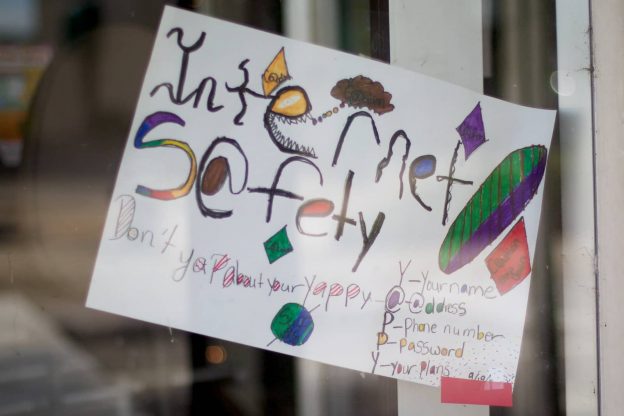 Internet
S@fety
Don't yap about your yappy
Y-Your name
@-@ddress
P-Phone number
P-Password
Y-your plans